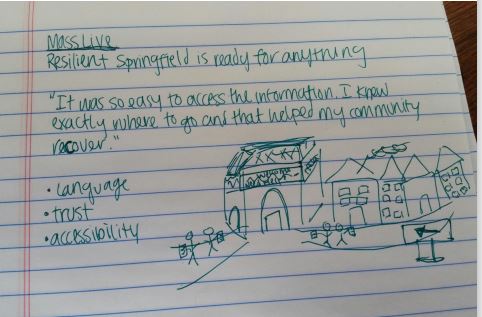 MassLive
Resilient Springfield is ready for anything
"It was so easy to access the information. I knew
exactly where to go and that helped my community
recover."
• language
• trust
• accessibility